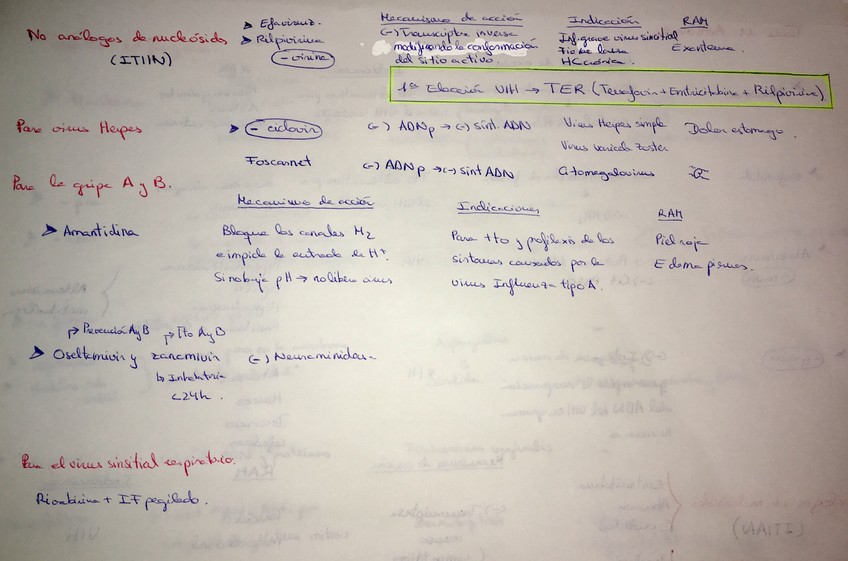 Mecanismo de acción Indicación RAM
No análogos de nucleósido (ITIAN)
➤ Efavirenz.
➤ Rilpivirina
- virina
(-) Transcriptasa inversa
modificando la conformación
del sitio activo.
Inf. grave virus sincitial
Fiebre Lassa
HC crónica.
Exantema.
1ª Elección VIH → TER (Tenofovir + Emtricitabina + Rilpivirina)
Para virus Herpes
➤ - ciclovir (-) ADNp → (-) sínt. ADN Virus Herpes simple Dolor estomago.
Virus varicela Zoster
Foscarnet (-) ADNp → (-) sint ADN Citomegalovirus
Para la gripe A y B.
Mecanismo de acción Indicaciones RAM
➤ Amantidina Bloquea los canales M2 Para tto y profilaxis de los Piel roja
e impide la entrada de H+. síntomas causados por le Edema piernas.
Si no baja pH → no libera virus virus Influenza tipo A.
↱ Prevención A y B ↱ Tto A y B
➤ Oseltamivir y zanamivir (-) Neuraminidasa
↳ Inhalatoria
<24h.
Para el virus sinsitial respiratorio.
Rivabirina + IF pegilado.